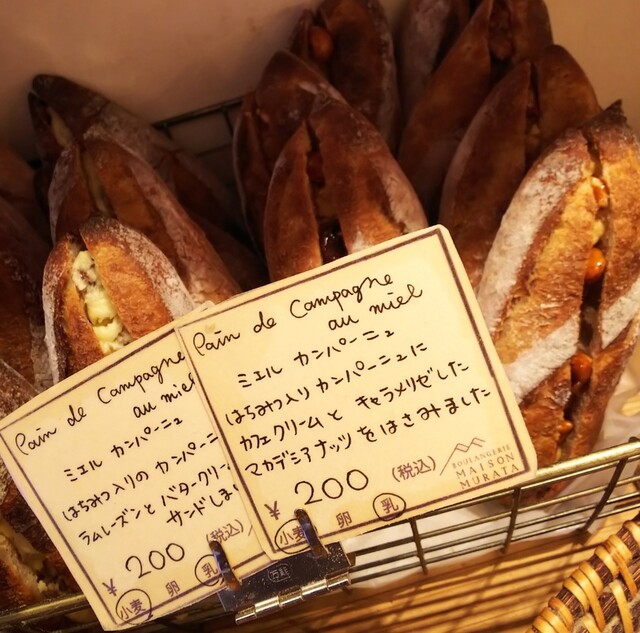 Pain de Campagne
au miel
ミエル カンパーニュ
はちみつ入りのカンパーニ
ラムレーズンとバタークリー
サンドしま
¥ 200 (税込)
小麦 卵 乳
Pain de Campagne
au miel
ミエル カンパーニュ
はちみつ入りカンパーニュに
カフェクリームと キャラメリゼした
マカデミアナッツをはさみました
¥ 200 (税込)
小麦 卵 乳
BOULANGERIE
MAISON
MURATA